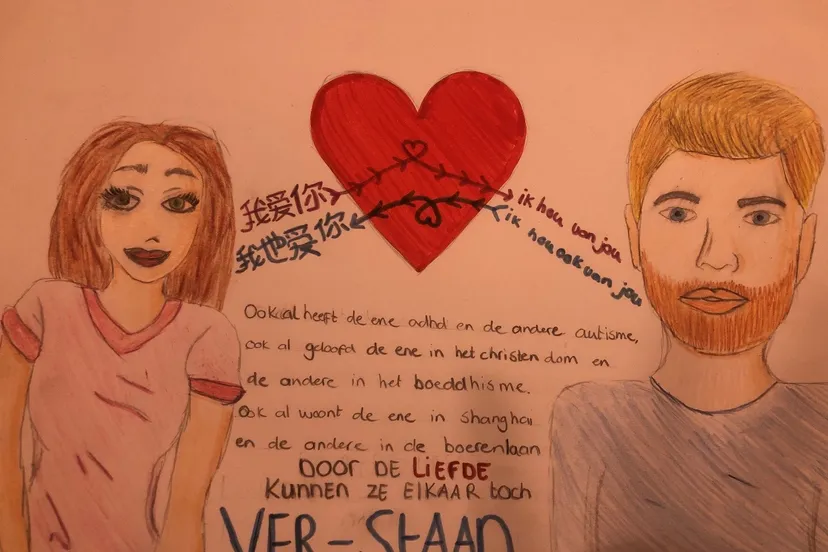 我爱你
ik hou van jou
我也爱你
ik hou ook van jou
Ook al heeft de ene adhd en de andere autisme,
ook al geloofd de ene in het christen dom en
de andere in het boeddhisme.
Ook al woont de ene in Shanghai
en de andere in de boerenlaan
DOOR DE LIEFDE
KUNNEN ZE ElKAAR toch
VER-StAAN